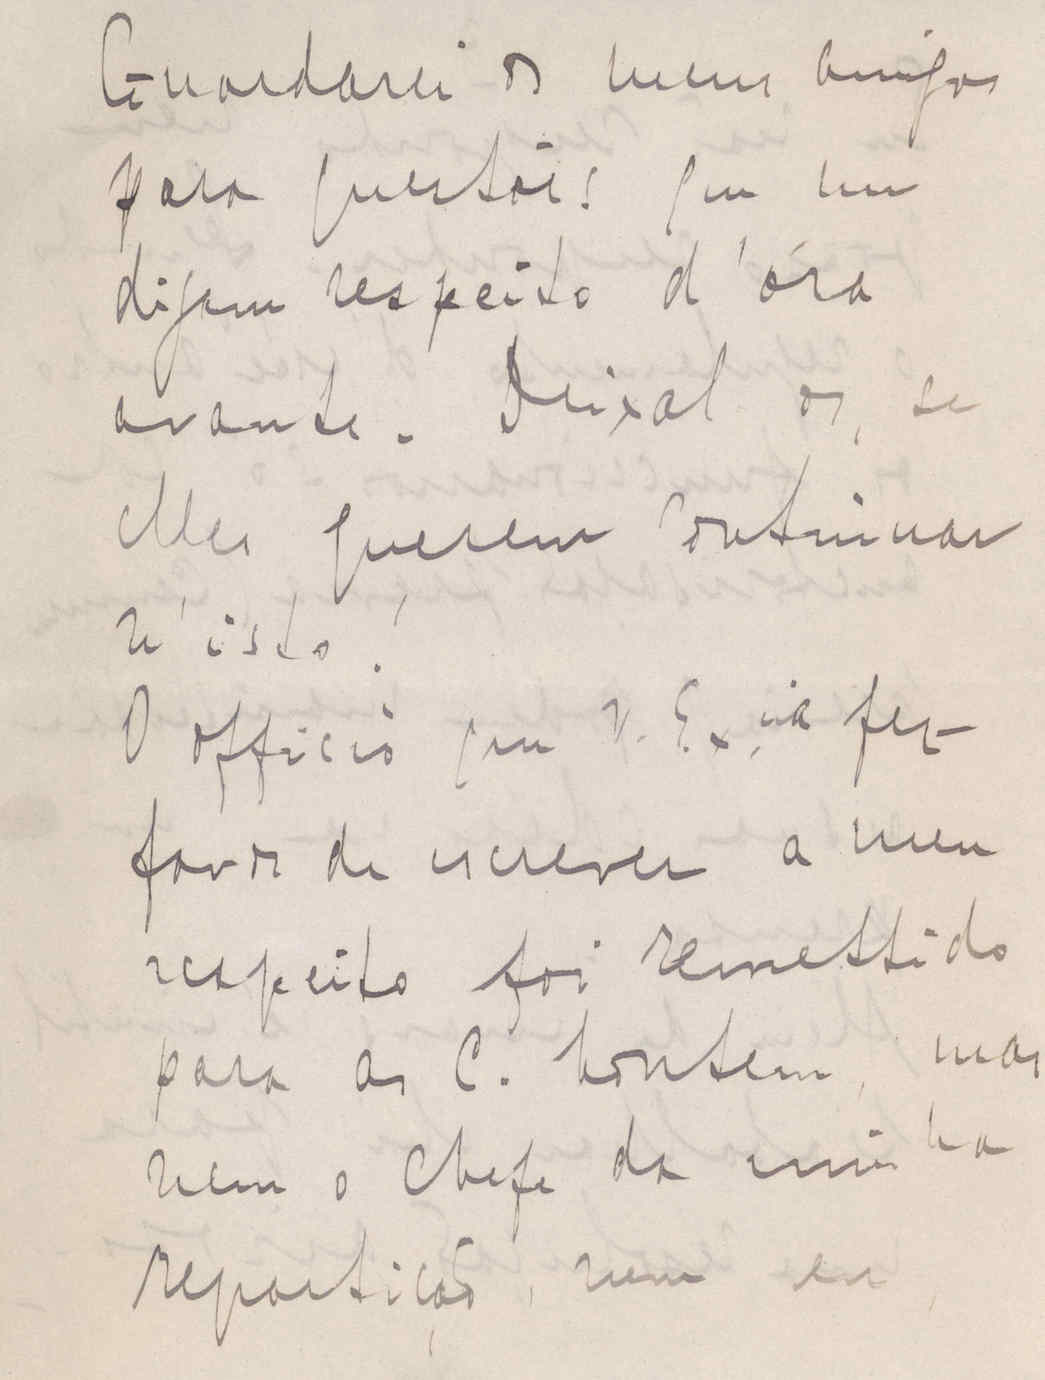 Guardarei os meus amigos
para questões que me
digam respeito d'óra
avante. Deixal os, se
elles querem continuar
n'isto!
O officio que V. Ex.ᶜⁱᵃ fez
favor de escrever a meu
respeito foi remettido
para as C. hontem, mas
nem o Chefe da minha
repartição, nem eu,